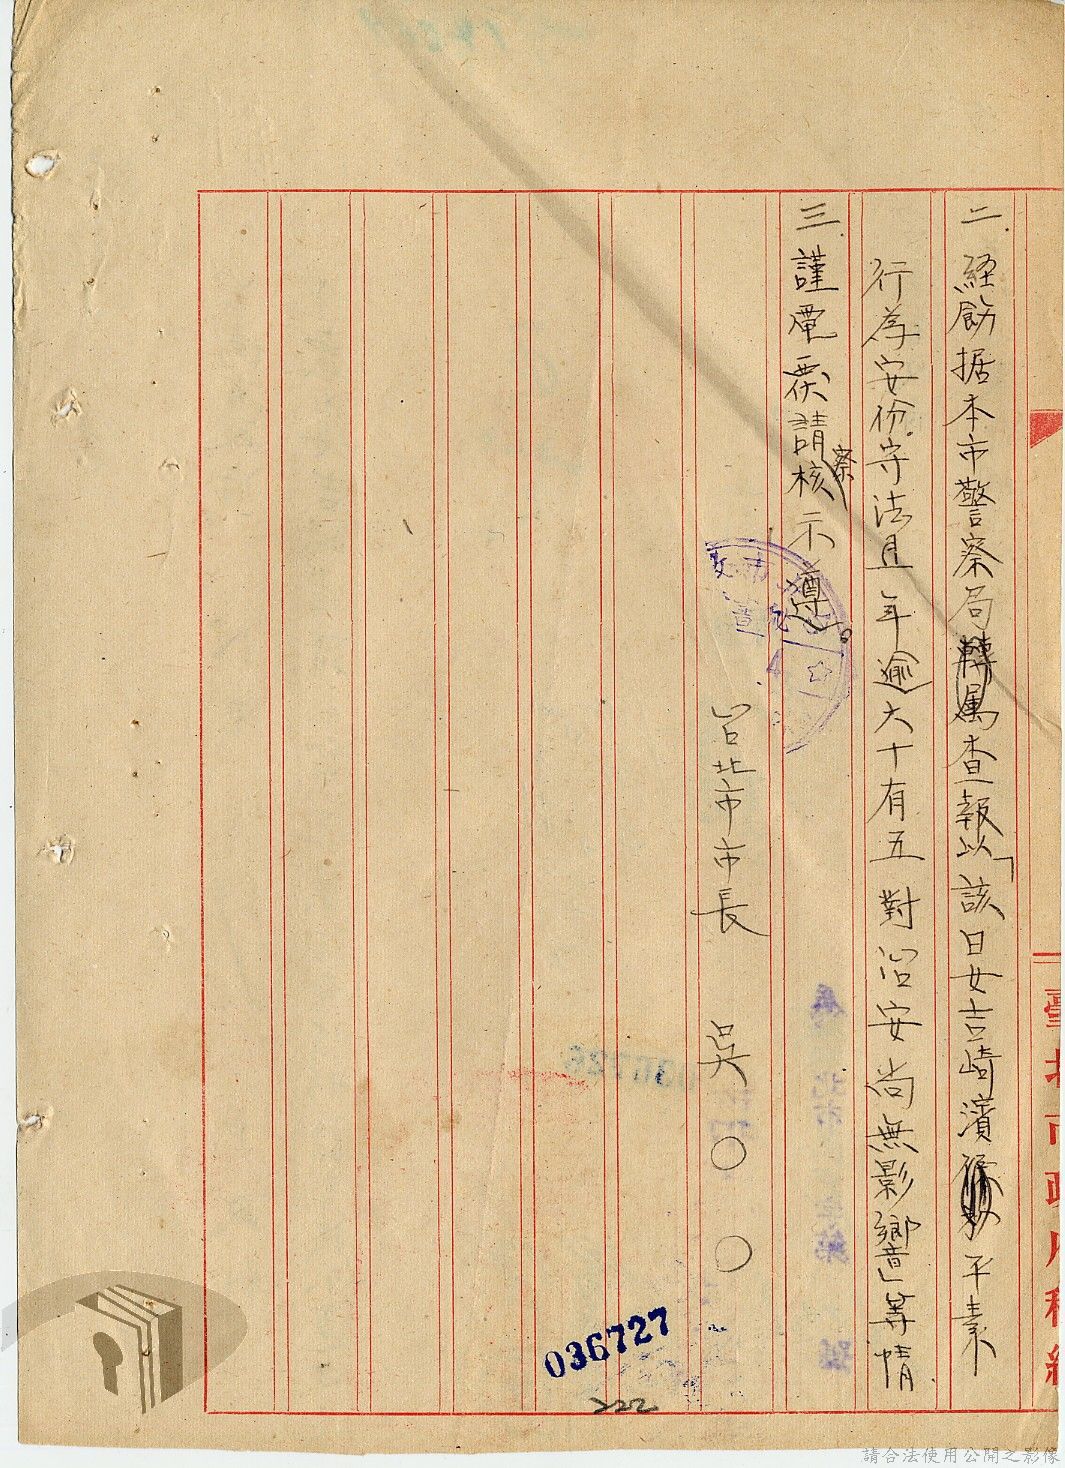 臺北市政府稿紙
二.経飭据本市警察局査報以「該日女吉崎濱平素
行為安份守法且年逾六十有五對治安尚無影響」等情
三.謹電察請核察示遵。
台北市市長 吳〇〇
036727
222
請合法使用公開之影像